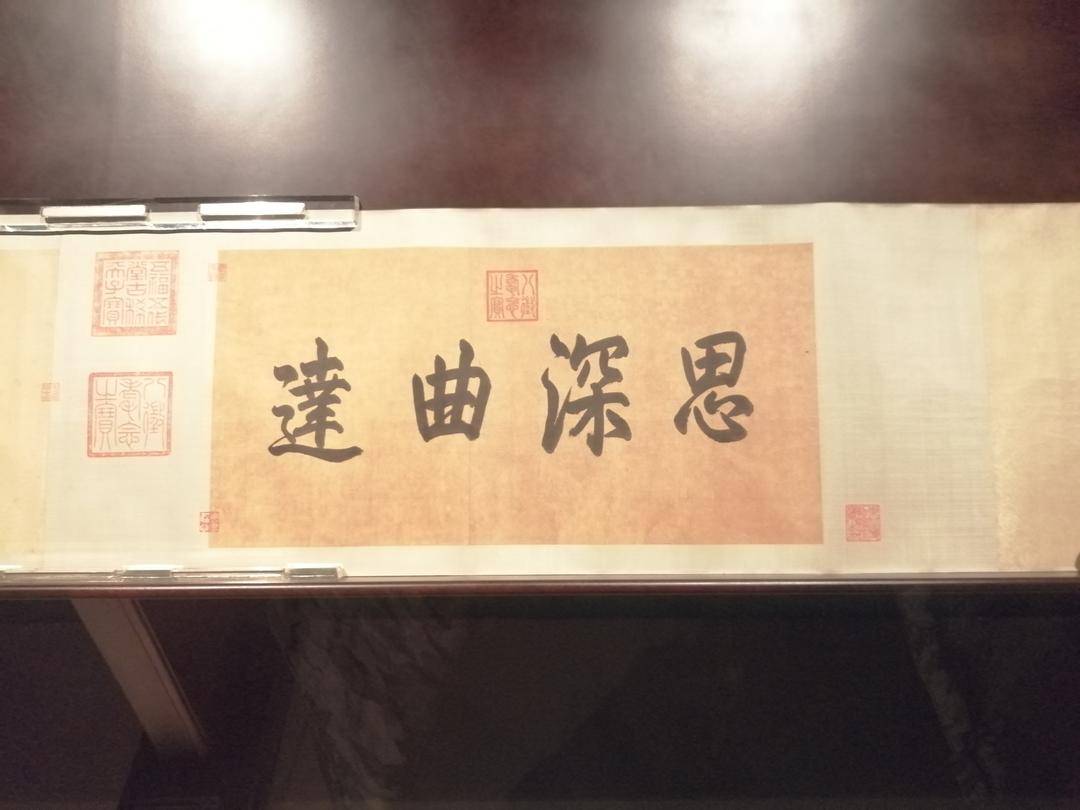 思深曲達
八徵耄念之寶
五福五代堂古稀天子寶
八徵耄念之寶